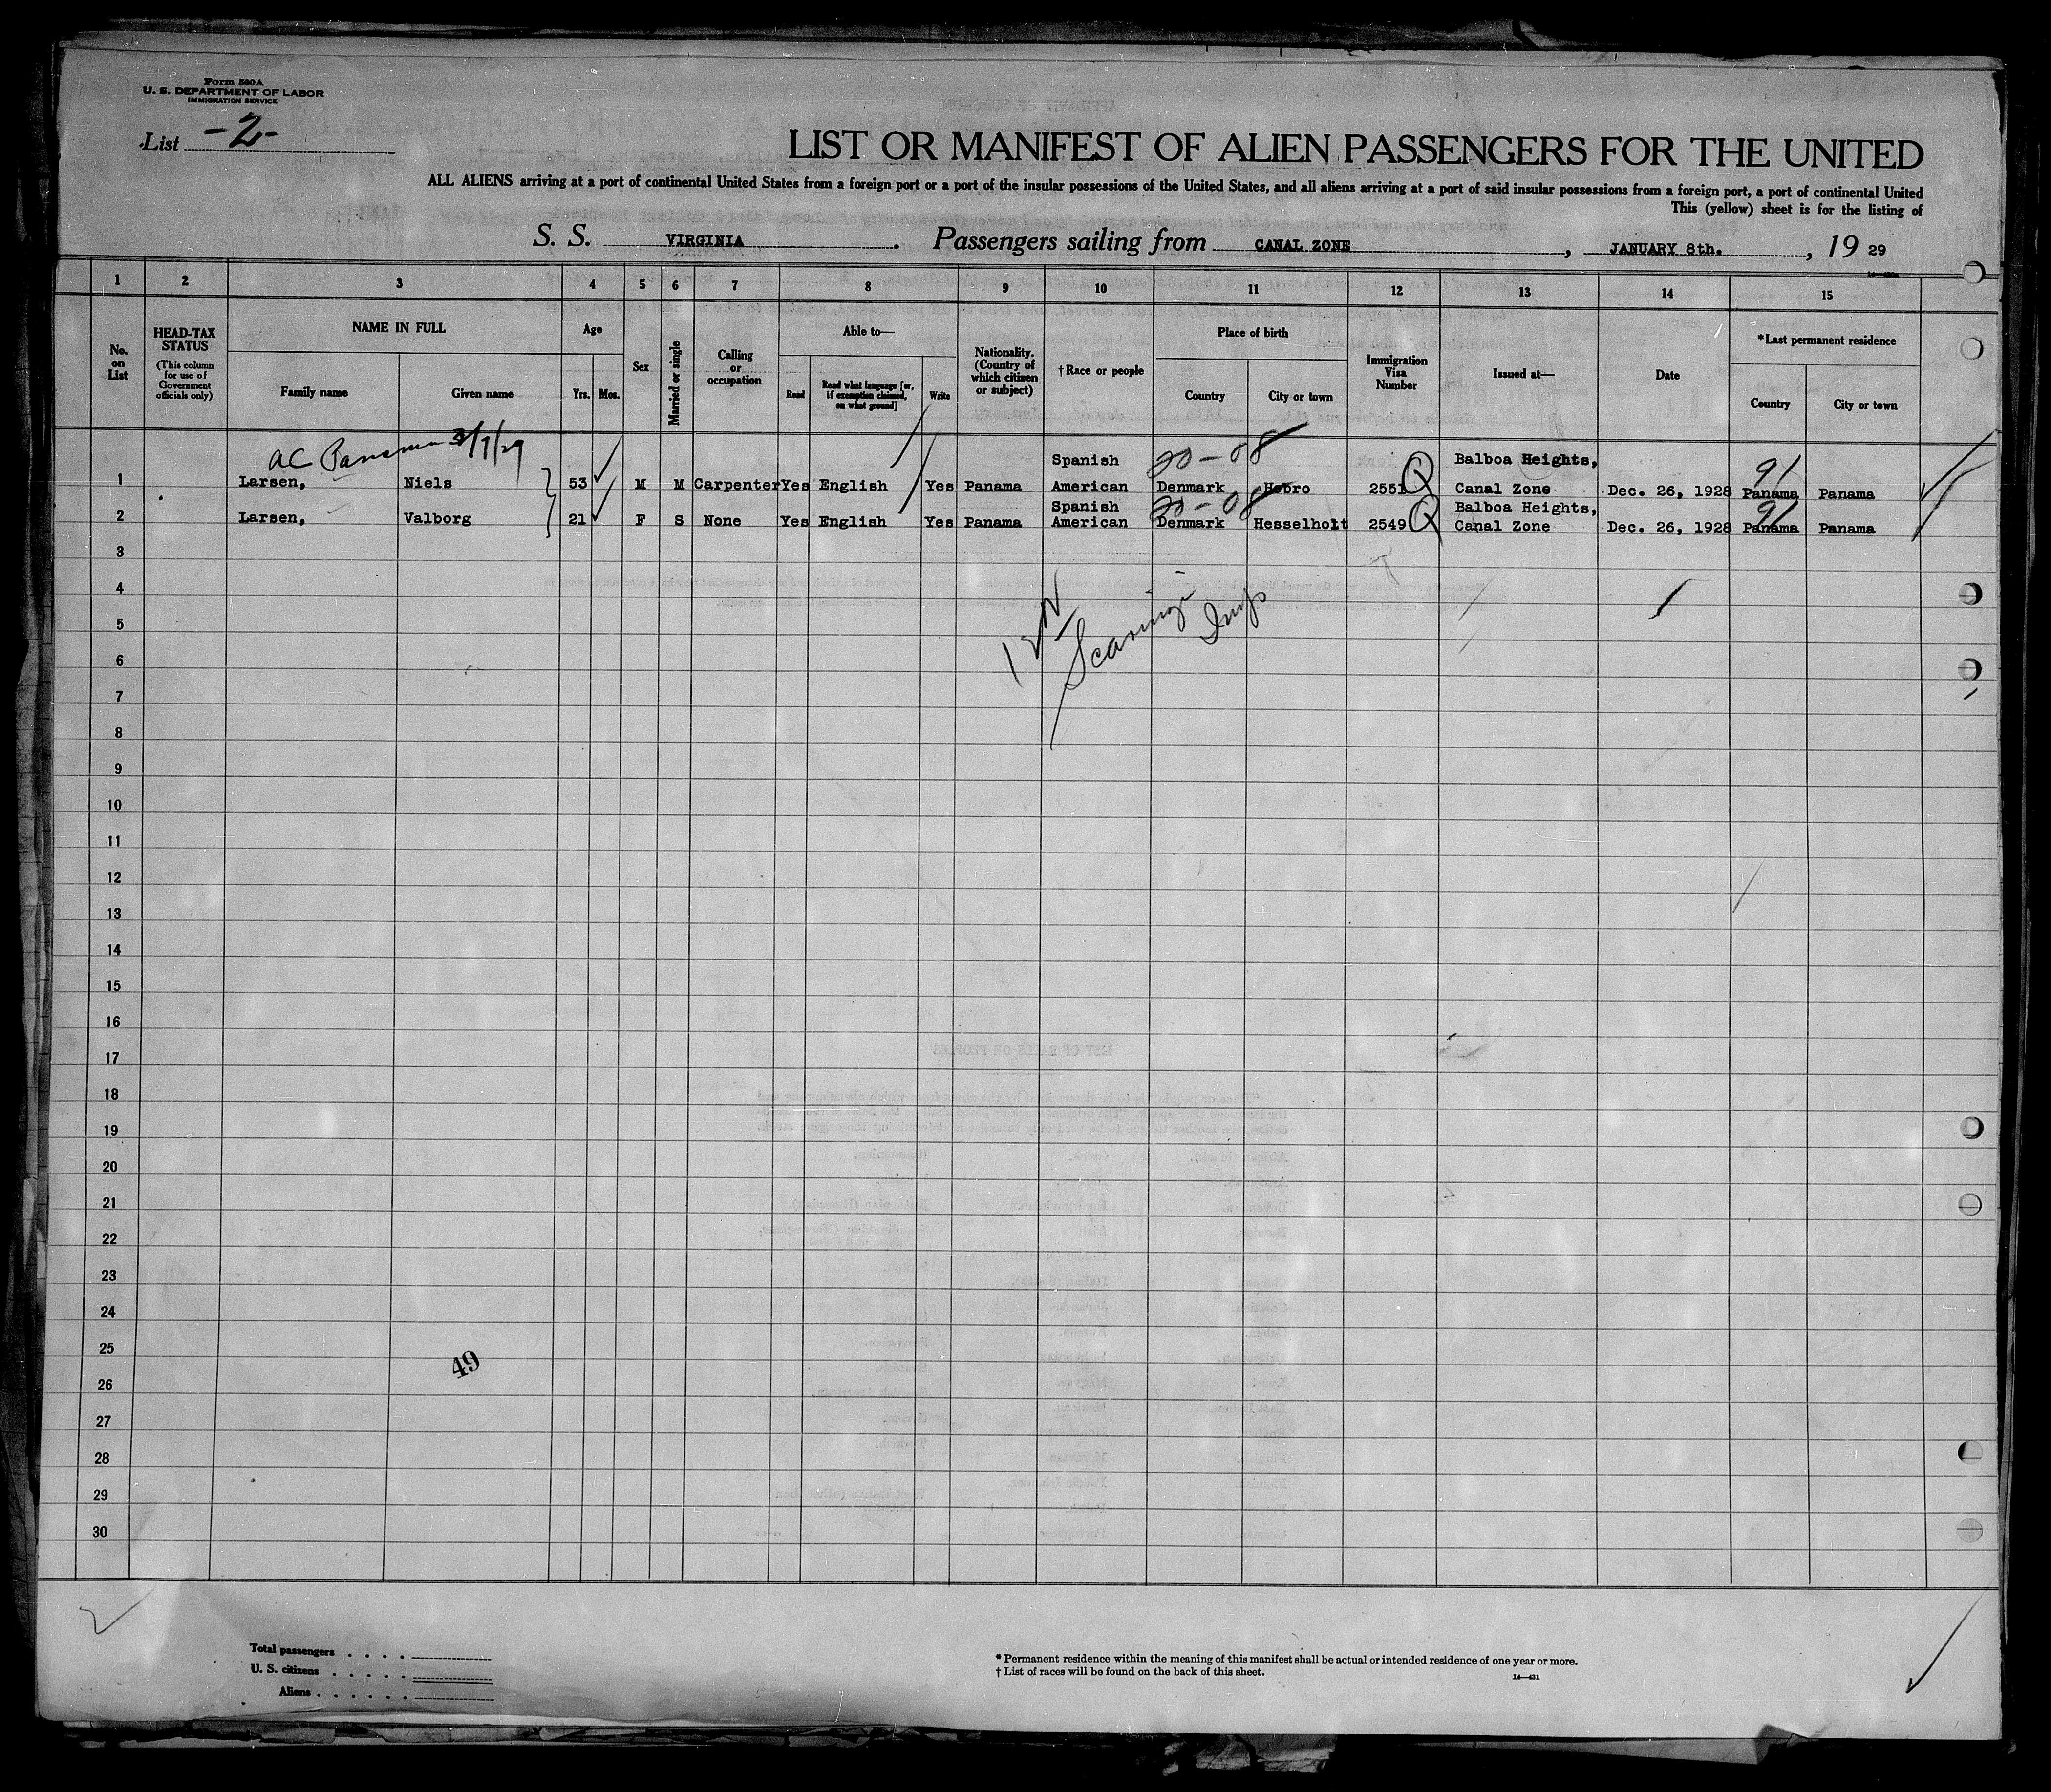 Form 500A
U. S. DEPARTMENT OF LABOR
IMMIGRATION SERVICE
List -2-
LIST OR MANIFEST OF ALIEN PASSENGERS FOR THE UNITED
ALL ALIENS arriving at a port of continental United States from a foreign port or a port of the insular possessions of the United States, and all aliens arriving at a port of said insular possessions from a foreign port, a port of continental United
This (yellow) sheet is for the listing of
S. S. VIRGINIA. Passengers sailing from CANAL ZONE, JANUARY 8th., 19 29
1 2 3 4 5 6 7 8 9 10 11 12 13 14 15
No. on List
HEAD-TAX STATUS
(This column for use of Government officials only)
NAME IN FULL
Family name
Given name
Age
Yrs. Mos.
Sex
Married or single
Calling or occupation
Able to—
Read
Read what language [or, if exemption claimed, on what ground]
Write
Nationality. (Country of which citizen or subject)
†Race or people
Place of birth
Country
City or town
Immigration Visa Number
Issued at—
Date
*Last permanent residence
Country
City or town
AC Panama 3/7/29
1 Larsen, Niels 53 M M Carpenter Yes English Yes Panama Spanish American 20-08 Denmark Hobro 2551 Q Balboa Heights, Canal Zone Dec. 26, 1928 91 Panama Panama
2 Larsen, Valborg 21 F S None Yes English Yes Panama Spanish American 20-08 Denmark Hesselholt 2549 Q Balboa Heights, Canal Zone Dec. 26, 1928 91 Panama Panama
3
4
5
6
7
8
9
10
11
12
13
14
15
16
17
18
19
20
21
22
23
24
25
49
26
27
28
29
30
Total passengers . . . .
U. S. citizens . . . . .
Aliens . . . . . .
* Permanent residence within the meaning of this manifest shall be actual or intended residence of one year or more.
† List of races will be found on the back of this sheet.
14—431